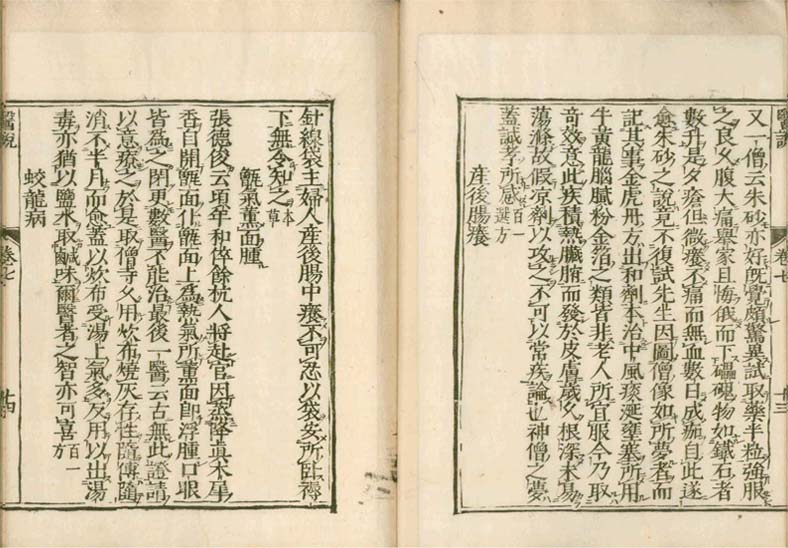 醫說
卷七
十三
又一僧云朱砂亦好旣覺頗驚異試取藥半粒強服
之良久腹大痛擧家且悔俄而下礧磈物如鐵石者
數升是夕瘡但微癢不痛而無血數日成痂自此遂
愈朱砂之說竟不復試先生因圖僧像如所夢者而
記其事金虎丹方出和劑本治中風痰涎壅塞所用
牛黃龍腦膩粉金箔之類皆非老人所宜服今乃取
奇效意此疾積熱臟腑而發於皮膚歲久根深未易
蕩滌故假凉劑以攻之不可以常疾論也神僧之夢
蓋誠孝所感百一選方
產後腸癢
針線袋主婦人產後腸中癢不可忍以袋安所臥褥
下無令知之本草
甑氣薰面腫
張德俊云頃年和倅餘杭人將赴官因蒸降真木犀
香自開甑面仆甑面上爲熱氣所薰面卽浮腫口眼
皆爲之閉更數醫不能治最後一醫云古無此證請
以意療之於是取僧寺久用炊布燒灰存性隨傅隨
消不半月而愈蓋以炊布受湯上氣多反用以出湯
毒亦猶以鹽水取鹹味爾醫者之智亦可喜百一方
蛟龍病
醫說
卷七
十四